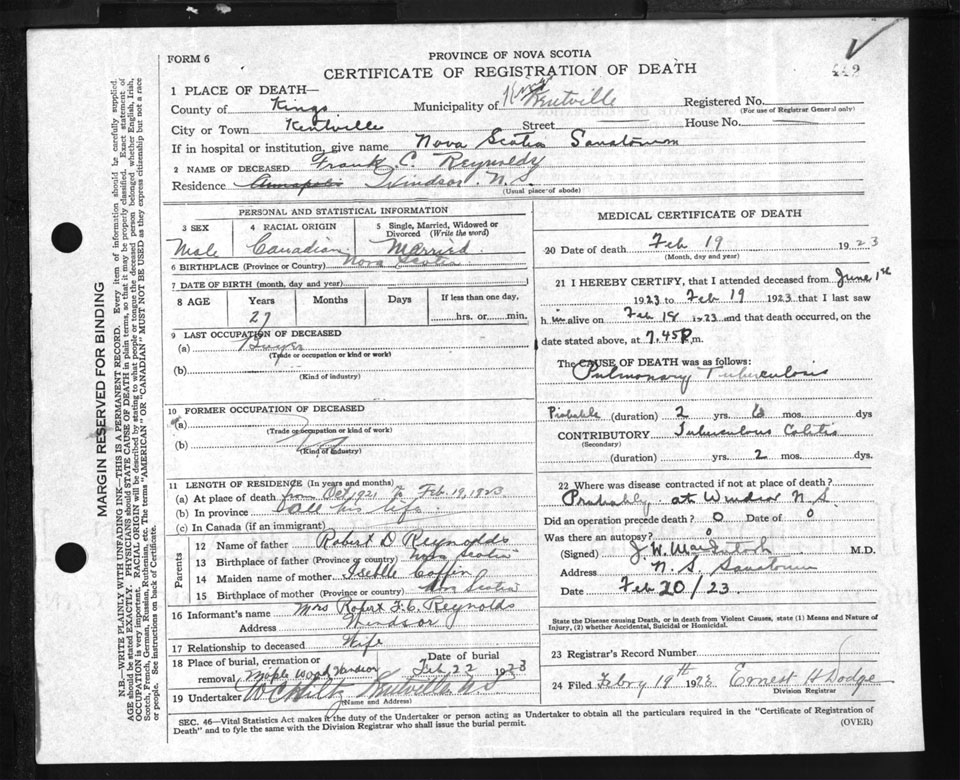 FORM 6
PROVINCE OF NOVA SCOTIA
CERTIFICATE OF REGISTRATION OF DEATH
449
1 PLACE OF DEATH—
County of Kings Municipality of Kings Kentville Registered No.
(For use of Registrar General only)
City or Town Kentville Street House No.
If in hospital or institution, give name Nova Scotia Sanatorium
2 NAME OF DECEASED Frank C. Reynolds
Residence Annapolis Windsor. N.S.
(Usual place of abode)
PERSONAL AND STATISTICAL INFORMATION
3 SEX 4 RACIAL ORIGIN 5 Single, Married, Widowed or Divorced (Write the word)
Male Canadian Married
6 BIRTHPLACE (Province or Country) Nova Scotia
7 DATE OF BIRTH (month, day and year)
8 AGE Years Months Days If less than one day,
27 hrs. or min.
9 LAST OCCUPATION OF DECEASED
(a) Buyer
(Trade or occupation or kind or work)
(b)
(Kind of industry)
10 FORMER OCCUPATION OF DECEASED
(a)
(Trade or occupation or kind of work)
(b)
(Kind of industry)
11 LENGTH OF RESIDENCE (In years and months)
(a) At place of death from Oct 1921 to Feb. 19, 1923
(b) In province all his life.
(c) In Canada (if an immigrant)
Parents
12 Name of father Robert D Reynolds
13 Birthplace of father (Province or country) Nova Scotia
14 Maiden name of mother Coffin
15 Birthplace of mother (Province or country) Nova Scotia
16 Informant's name Mrs Robert F. C. Reynolds
Address Windsor
17 Relationship to deceased Wife
18 Place of burial, cremation or removal Maple Wood Windsor Date of burial Feb 22 1923
19 Undertaker Kentville NS
(Name and Address)
MEDICAL CERTIFICATE OF DEATH
20 Date of death Feb 19 1923
(Month, day and year)
21 I HEREBY CERTIFY, that I attended deceased from June 1st
1923 to Feb 19 1923 and that I last saw
h im alive on Feb 18 1923 and that death occurred, on the
date stated above, at 7.45 P.m.
The CAUSE OF DEATH was as follows:
Pulmonary Tuberculosis
Probable (duration) 2 yrs. 6 mos. dys
CONTRIBUTORY Tuberculous Colitis
(Secondary)
(duration) yrs. 2 mos. dys
22 Where was disease contracted if not at place of death?
Probably at Windsor N.S.
Did an operation precede death? 0 Date of 0
Was there an autopsy? 0
(Signed) J. W. MacIntosh M.D.
Address N. S. Sanatorium
Date Feb 20/23.
State the Disease causing Death, or in death from Violent Causes, state (1) Means and Nature of Injury, (2) whether Accidental, Suicidal or Homicidal.
23 Registrar's Record Number
24 Filed Febry 19th 1923 Ernest H Dodge
Division Registrar
SEC. 46—Vital Statistics Act makes it the duty of the Undertaker or person acting as Undertaker to obtain all the particulars required in the "Certificate of Registration of
Death" and to fyle the same with the Division Registrar who shall issue the burial permit.
(OVER)
MARGIN RESERVED FOR BINDING
N.B.—WRITE PLAINLY WITH UNFADING INK—THIS IS A PERMANENT RECORD. Every item of information should be carefully supplied.
AGE should be stated EXACTLY. PHYSICIANS should STATE CAUSE OF DEATH in plain terms, so that it may be properly classified. Exact statement of
OCCUPATION is very important. RACIAL ORIGIN will be described by stating to what people or tongue the deceased person belonged whether English, Irish,
Scotch, French, German, Russian, Ruthenian, etc. The terms "AMERICAN" OR "CANADIAN" MUST NOT BE USED as they express citizenship but not a race
or people. See instructions on back of Certificate.